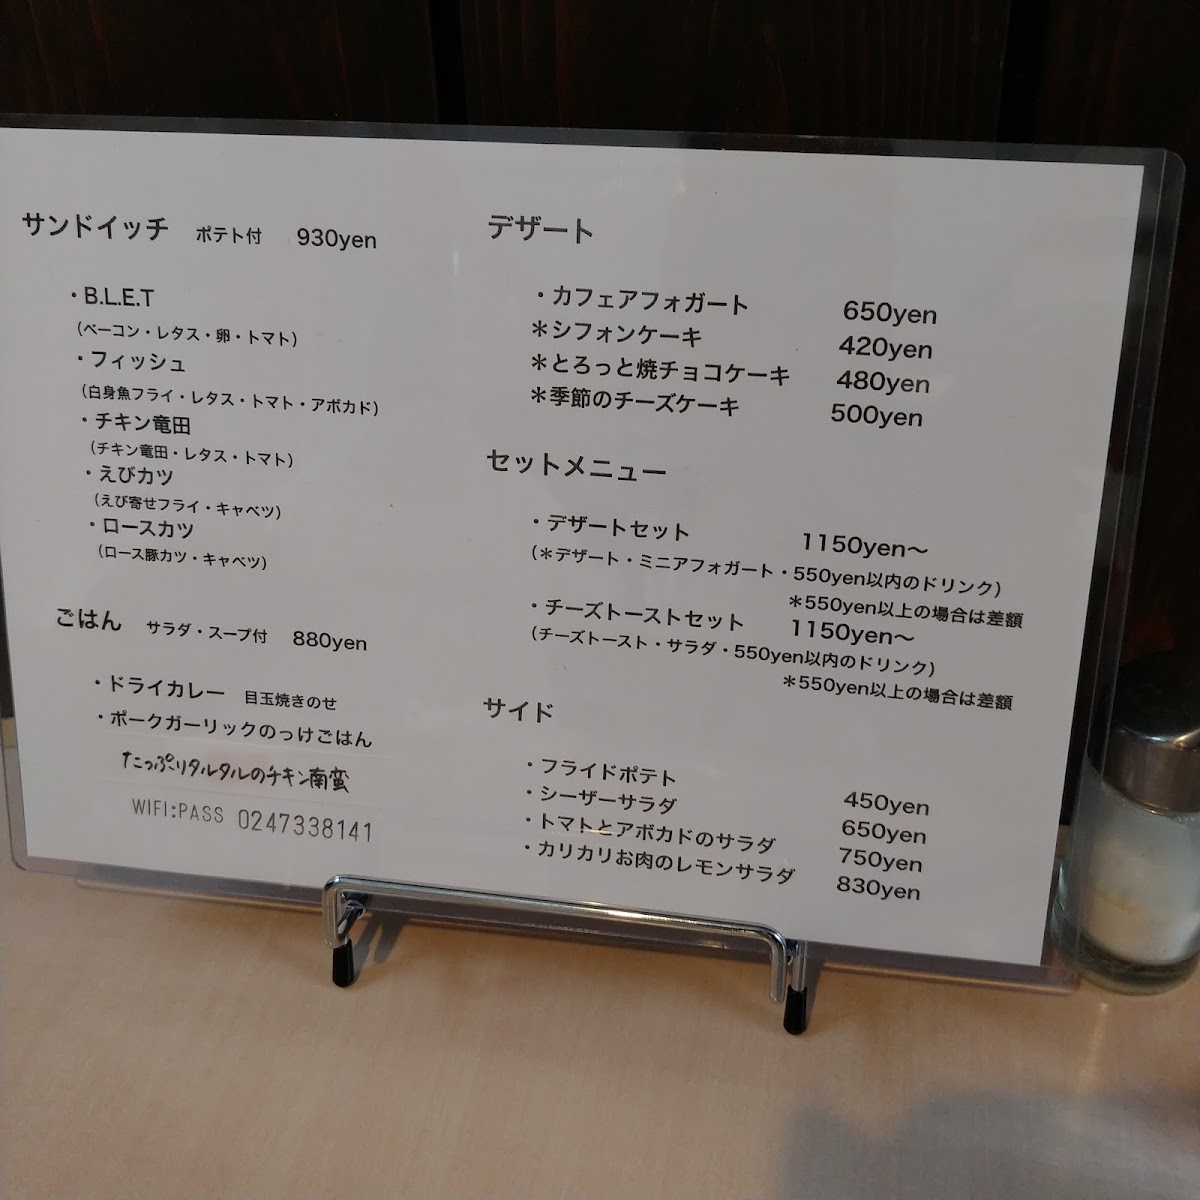 サンドイッチ ポテト付 930yen
・B.L.E.T
（ベーコン・レタス・卵・トマト）
・フィッシュ
（白身魚フライ・レタス・トマト・アボカド）
・チキン竜田
（チキン竜田・レタス・トマト）
・えびカツ
（えび寄せフライ・キャベツ）
・ロースカツ
（ロース豚カツ・キャベツ）
ごはん サラダ・スープ付 880yen
・ドライカレー 目玉焼きのせ
・ポークガーリックのっけごはん
たっぷりタルタルのチキン南蛮
WIFI:PASS 0247338141
デザート
・カフェアフォガート 650yen
＊シフォンケーキ 420yen
＊とろっと焼チョコケーキ 480yen
＊季節のチーズケーキ 500yen
セットメニュー
・デザートセット 1150yen〜
（＊デザート・ミニアフォガート・550yen以内のドリンク）
＊550yen以上の場合は差額
・チーズトーストセット 1150yen〜
（チーズトースト・サラダ・550yen以内のドリンク）
＊550yen以上の場合は差額
サイド
・フライドポテト 450yen
・シーザーサラダ 650yen
・トマトとアボカドのサラダ 750yen
・カリカリお肉のレモンサラダ 830yen